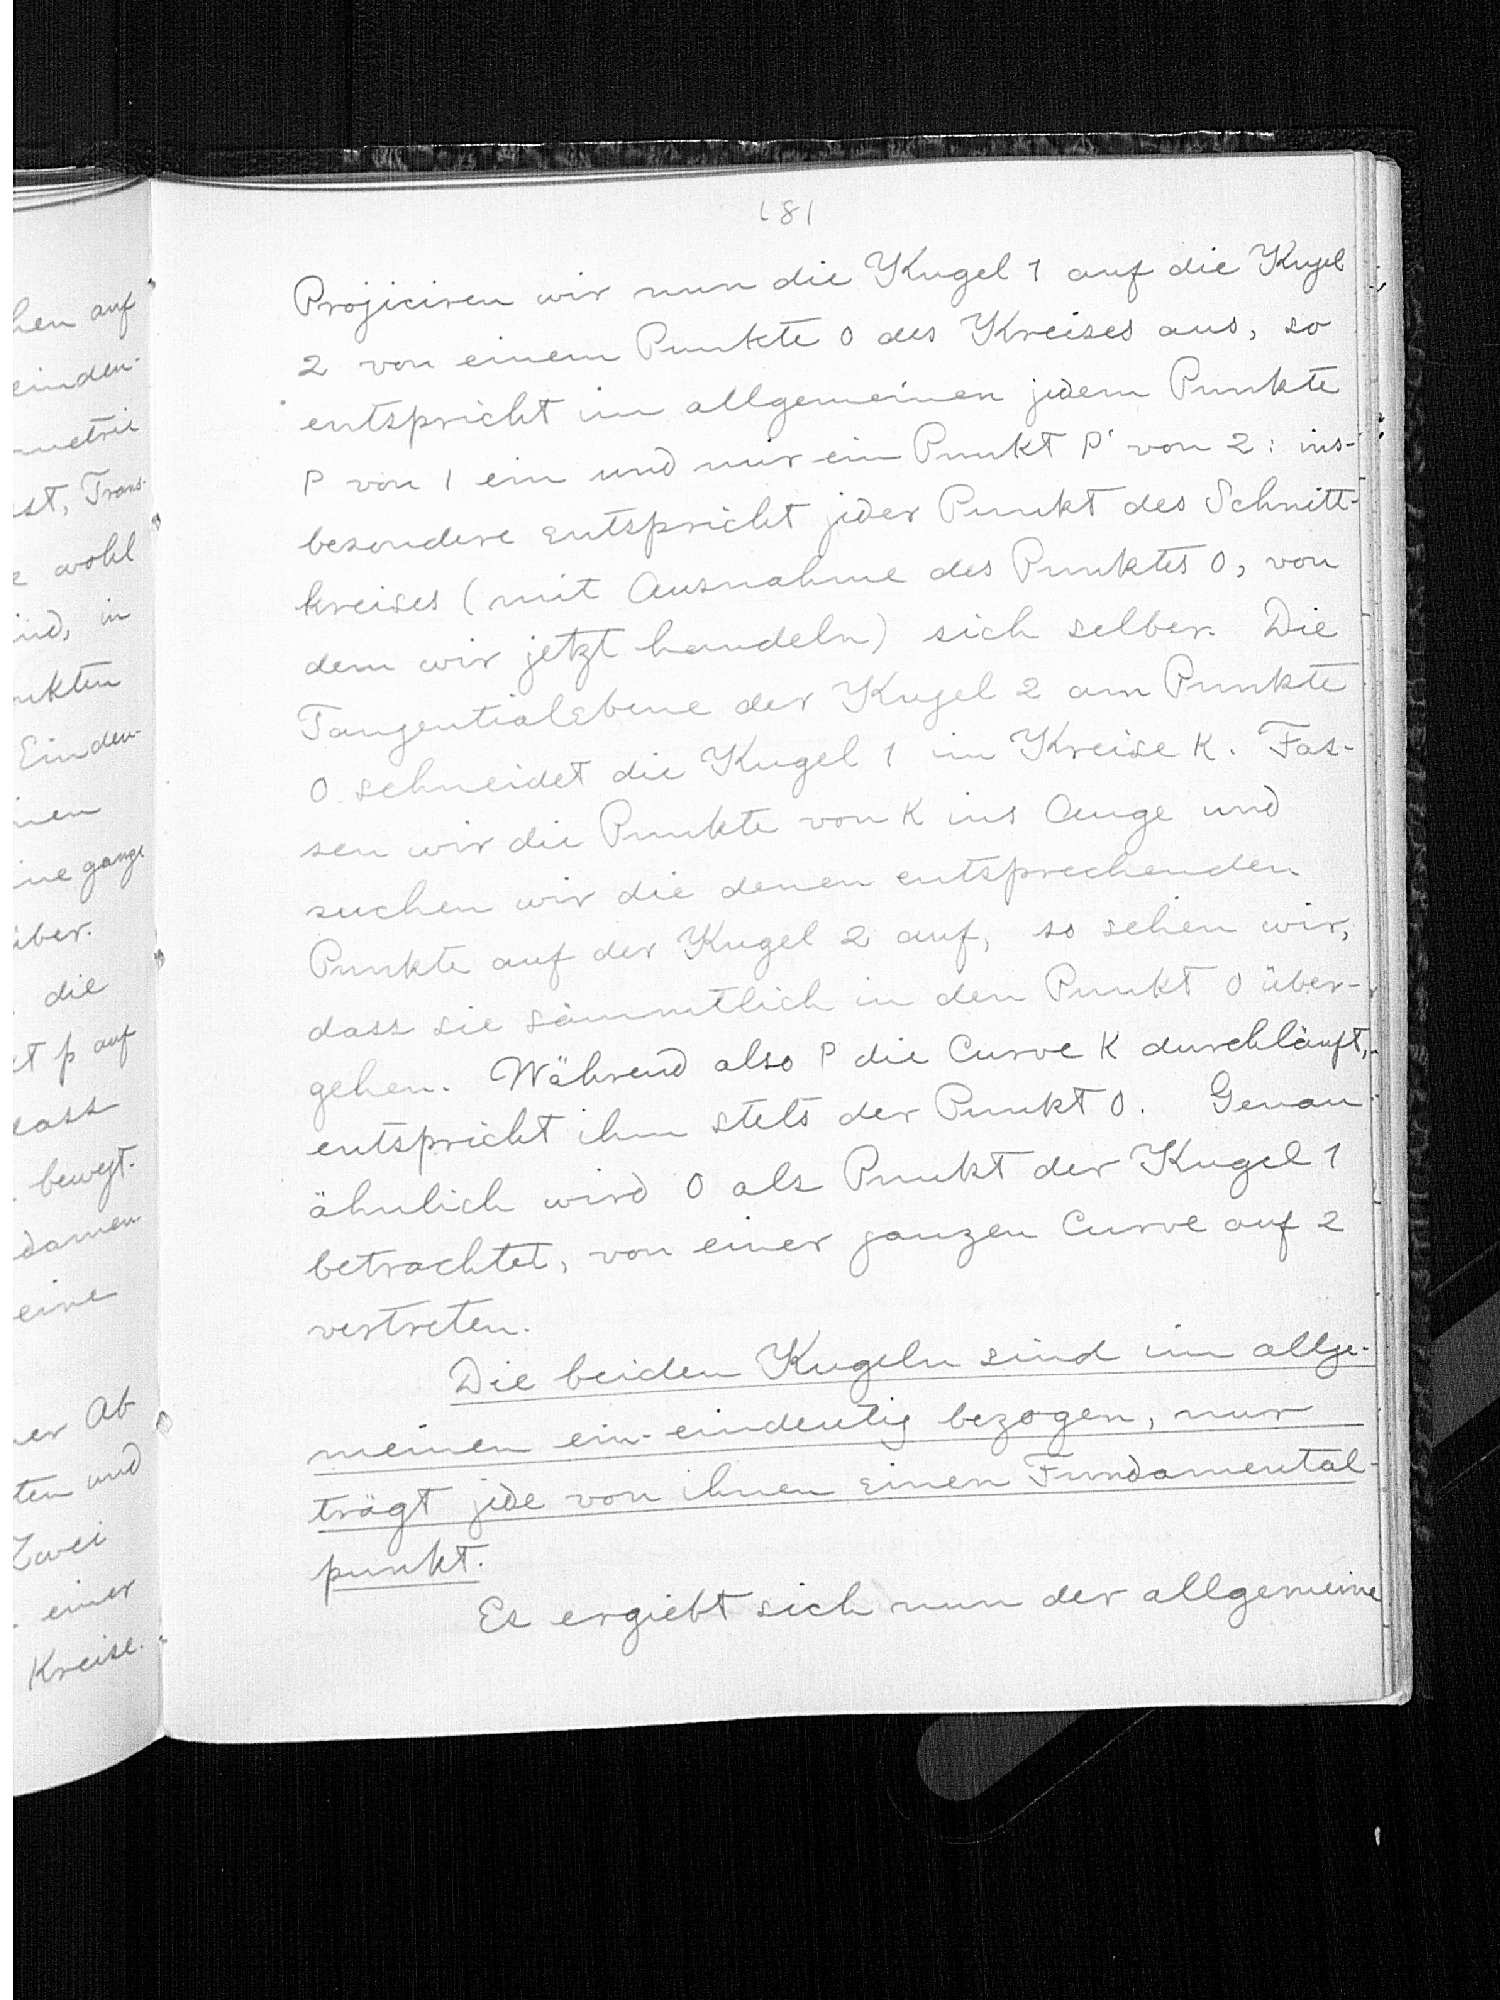 181
Projiciren wir nun die Kugel 1 auf die Kugel
2 von einem Punkte O des Kreises aus, so
entspricht im allgemeinen jedem Punkte
P von 1 ein und nur ein Punkt P' von 2: ins-
besondere entspricht jeder Punkt des Schnitt-
kreises (mit Ausnahme des Punktes O, von
dem wir jetzt handeln) sich selber. Die
Tangentialebene der Kugel 2 am Punkte
O schneidet die Kugel 1 im Kreise K. Fas-
sen wir die Punkte von K ins Auge und
suchen wir die denen entsprechenden
Punkte auf der Kugel 2 auf, so sehen wir,
dass sie sämmtlich in den Punkt O über-
gehen. Während also P die Curve K durchläuft,
entspricht ihm stets der Punkt O. Genau
ähnlich wird O als Punkt der Kugel 1
betrachtet, von einer ganzen Curve auf 2
vertreten.
Die beiden Kugeln sind im allge-
meinen ein-eindeutig bezogen, nur
trägt jede von ihnen einen Fundamental-
punkt.
Es ergiebt sich nun der allgemeine
hen auf
eindeu-
metrie
st, Trans-
wohl
ind, in
nkten
Eindeu-
nen
ine ganze
über.
die
kt p auf
dass
bewegt.
damen-
eine
ner Ab
ten und
Zwei
einer
Kreise.